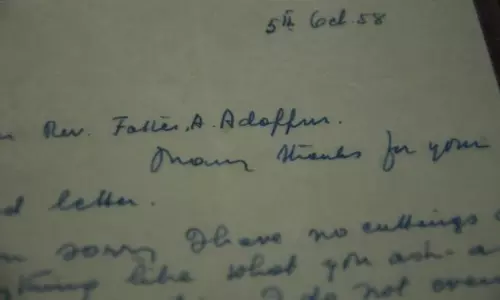 5th Oct. 58
Rev. Father, A. Adolfur.
Many thanks for your
letter.
sorry I have no cuttings
like what you ask - a
I do not even